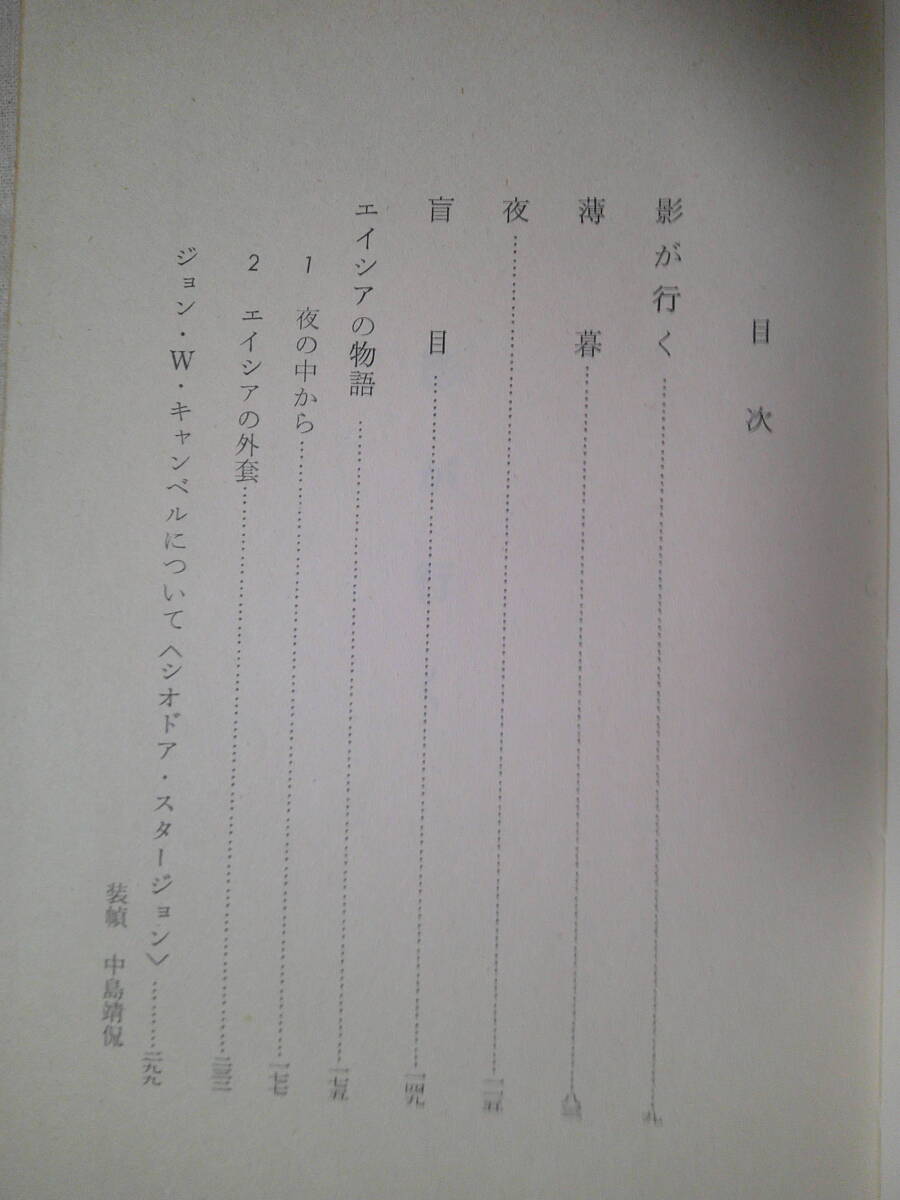 目次
影が行く……………………九
薄暮……………………
夜……………………
盲目……………………一四九
エイシアの物語……………………一七五
1 夜の中から……………………一七七
2 エイシアの外套……………………
ジョン・W・キャンベルについて〈シオドア・スタージョン〉………二九九
装幀 中島靖侃